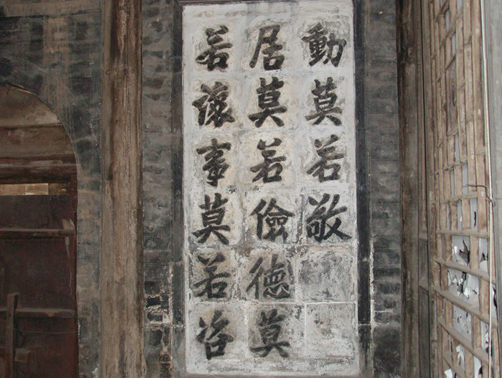 動莫若敬
居莫若儉德莫
若讓事莫若咨